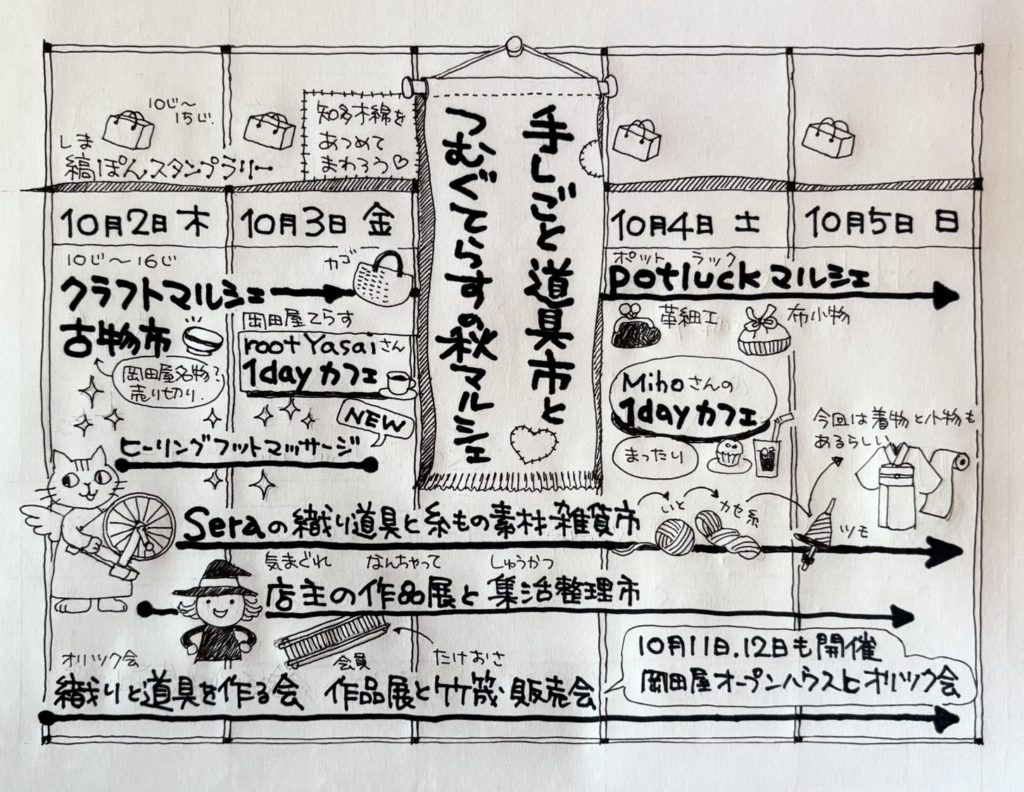 手しごと道具市と
つむぐてらすの秋マルシェ
10じ〜
15じ.
しま
縞ぽんスタンプラリー
知多木綿を
あつめて
まわろう♡
10月2日 木
10月3日 金
10月4日 土
10月5日 日
10じ〜16じ
クラフトマルシェ
カゴ
古物市
岡田屋名物?
売り切り.
岡田屋てらす
root Yasaiさん
1day カフェ
NEW
ヒーリングフットマッサージ
ポットラック
potluck マルシェ
革細工
布小物
Mihoさんの
1dayカフェ
まったり
今回は着物と小物も
あるらしい
Seraの織り道具と糸もの素材・雑貨市
いと
カセ糸
ツモ
気まぐれ なんちゃって しゅうかつ
店主の作品展と集活整理市
オリツク会 会員 たけおさ
織りと道具を作る会 作品展と竹筬・販売会
10月11日.12日も開催
岡田屋オープンハウスとオリツク会